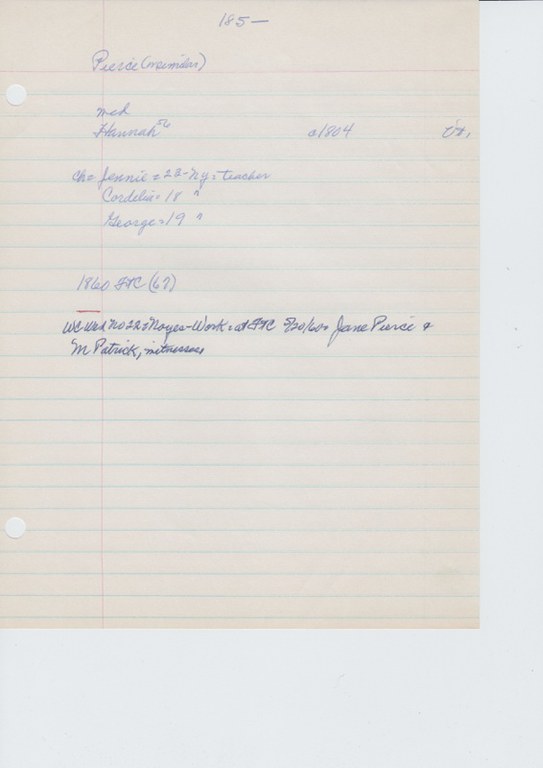 185—
Pierce
md
Hannah 56 c1804 Vt.
ch= Jennie = 22-Ny = teacher
Cordelia = 18 "
George = 19 "
1860 FtC (67)
WC Wed No 22 = Noyes-Work = at FtC 5/20/60 = Jane Pierce &
M Patrick, witnesses